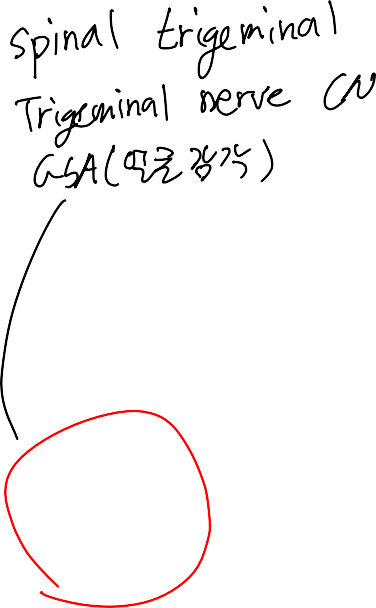 spinal trigeminal
Trigeminal nerve CN
GSA(얼굴감각)